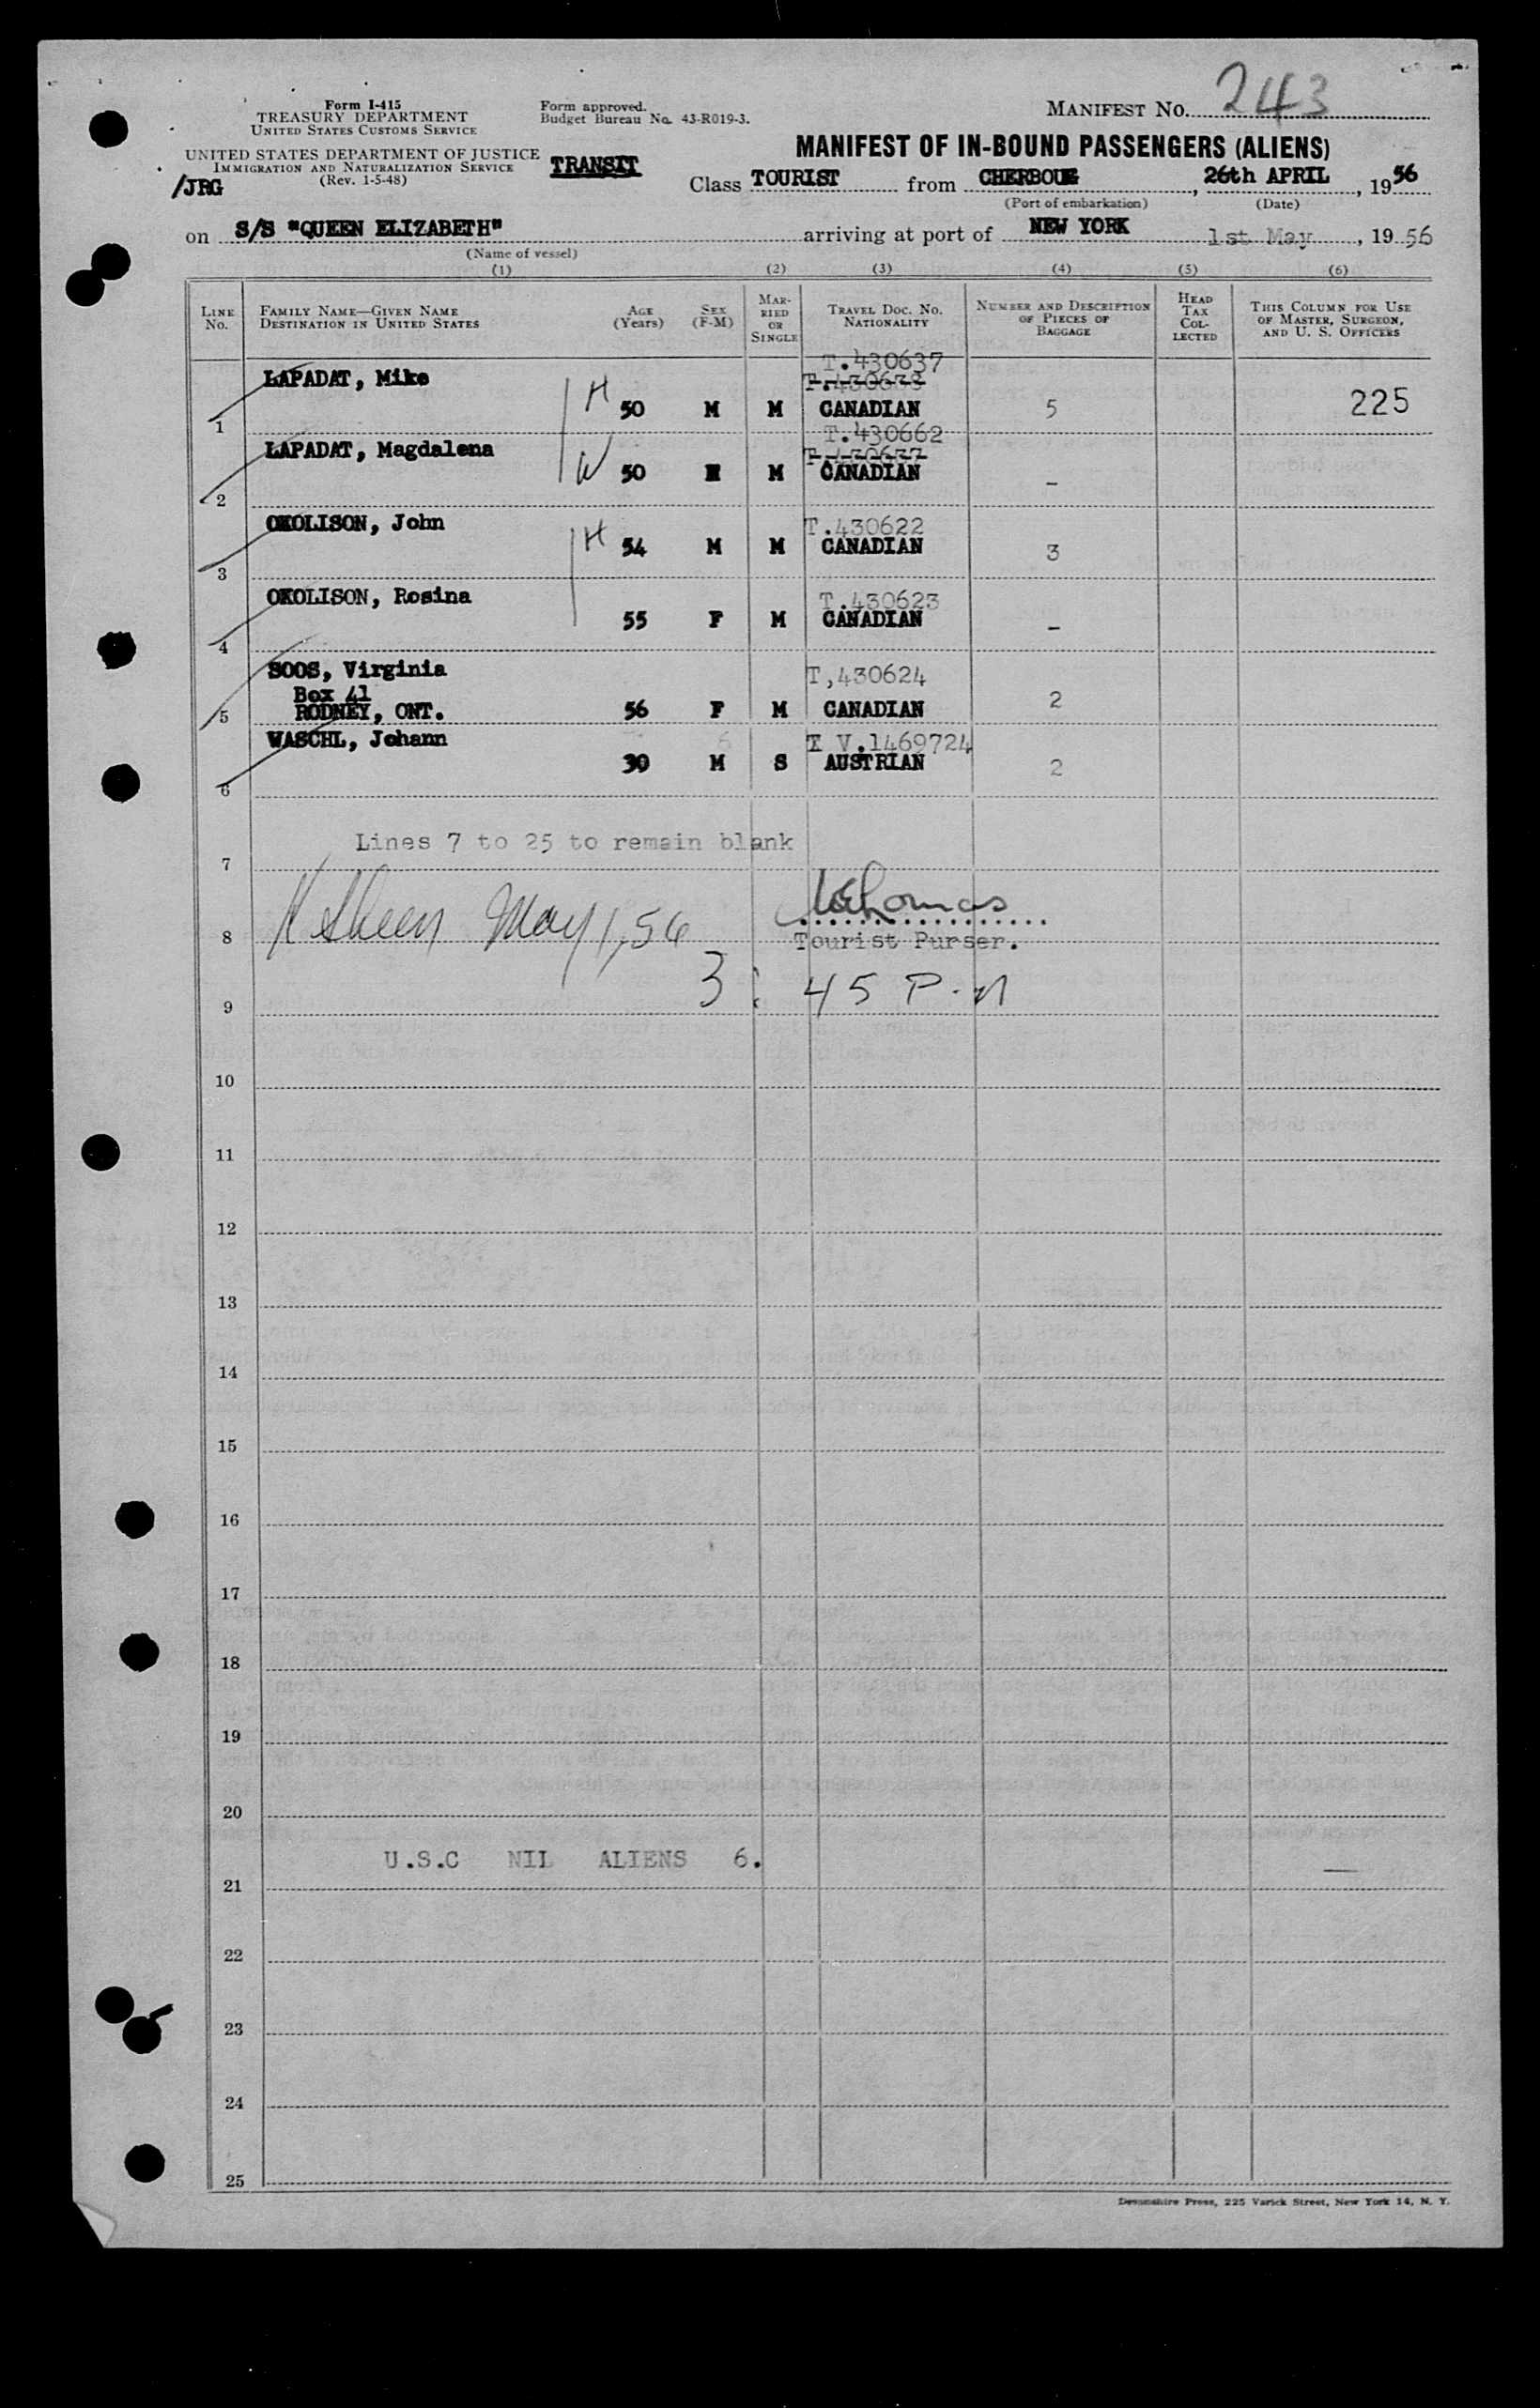 MANIFEST NO. 243
Form I-415
TREASURY DEPARTMENT
UNITED STATES CUSTOMS SERVICE
Form approved.
Budget Bureau No. 43-R019-3.
UNITED STATES DEPARTMENT OF JUSTICE
IMMIGRATION AND NATURALIZATION SERVICE
(Rev. 1-5-48)
/JRG
TRANSIT
MANIFEST OF IN-BOUND PASSENGERS (ALIENS)
Class TOURIST from CHERBOUG, 26th APRIL, 1956
(Port of embarkation) (Date)
on S/S "QUEEN ELIZABETH" arriving at port of NEW YORK 1st May, 1956
(Name of vessel)
(1) (2) (3) (4) (5) (6)
LINE No. FAMILY NAME—GIVEN NAME DESTINATION IN UNITED STATES AGE (Years) SEX (F-M) MARRIED OR SINGLE TRAVEL DOC. NO. NATIONALITY NUMBER AND DESCRIPTION OF PIECES OF BAGGAGE HEAD TAX COLLECTED THIS COLUMN FOR USE OF MASTER, SURGEON, AND U. S. OFFICERS
T.430637
LAPADAT, Mike
1 H 50 M M CANADIAN 5 225
T.430662
LAPADAT, Magdalena T.430637
2 W 50 M CANADIAN -
OKOLISON, John T.430622
3 H 54 M M CANADIAN 3
OKOLISON, Rosina T.430623
4 55 F M CANADIAN -
SOOS, Virginia T,430624
Box 41
5 RODNEY, ONT. 56 F M CANADIAN 2
WASCHL, Johann V.1469724
6 30 M S AUSTRIAN 2
Lines 7 to 25 to remain blank
7
8 May 1, 56 Tourist Purser.
9 3:45 P.M
10
11
12
13
14
15
16
17
18
19
20
U.S.C NIL ALIENS 6.
21
22
23
24
25
Devonshire Press, 225 Varick Street, New York 14, N. Y.